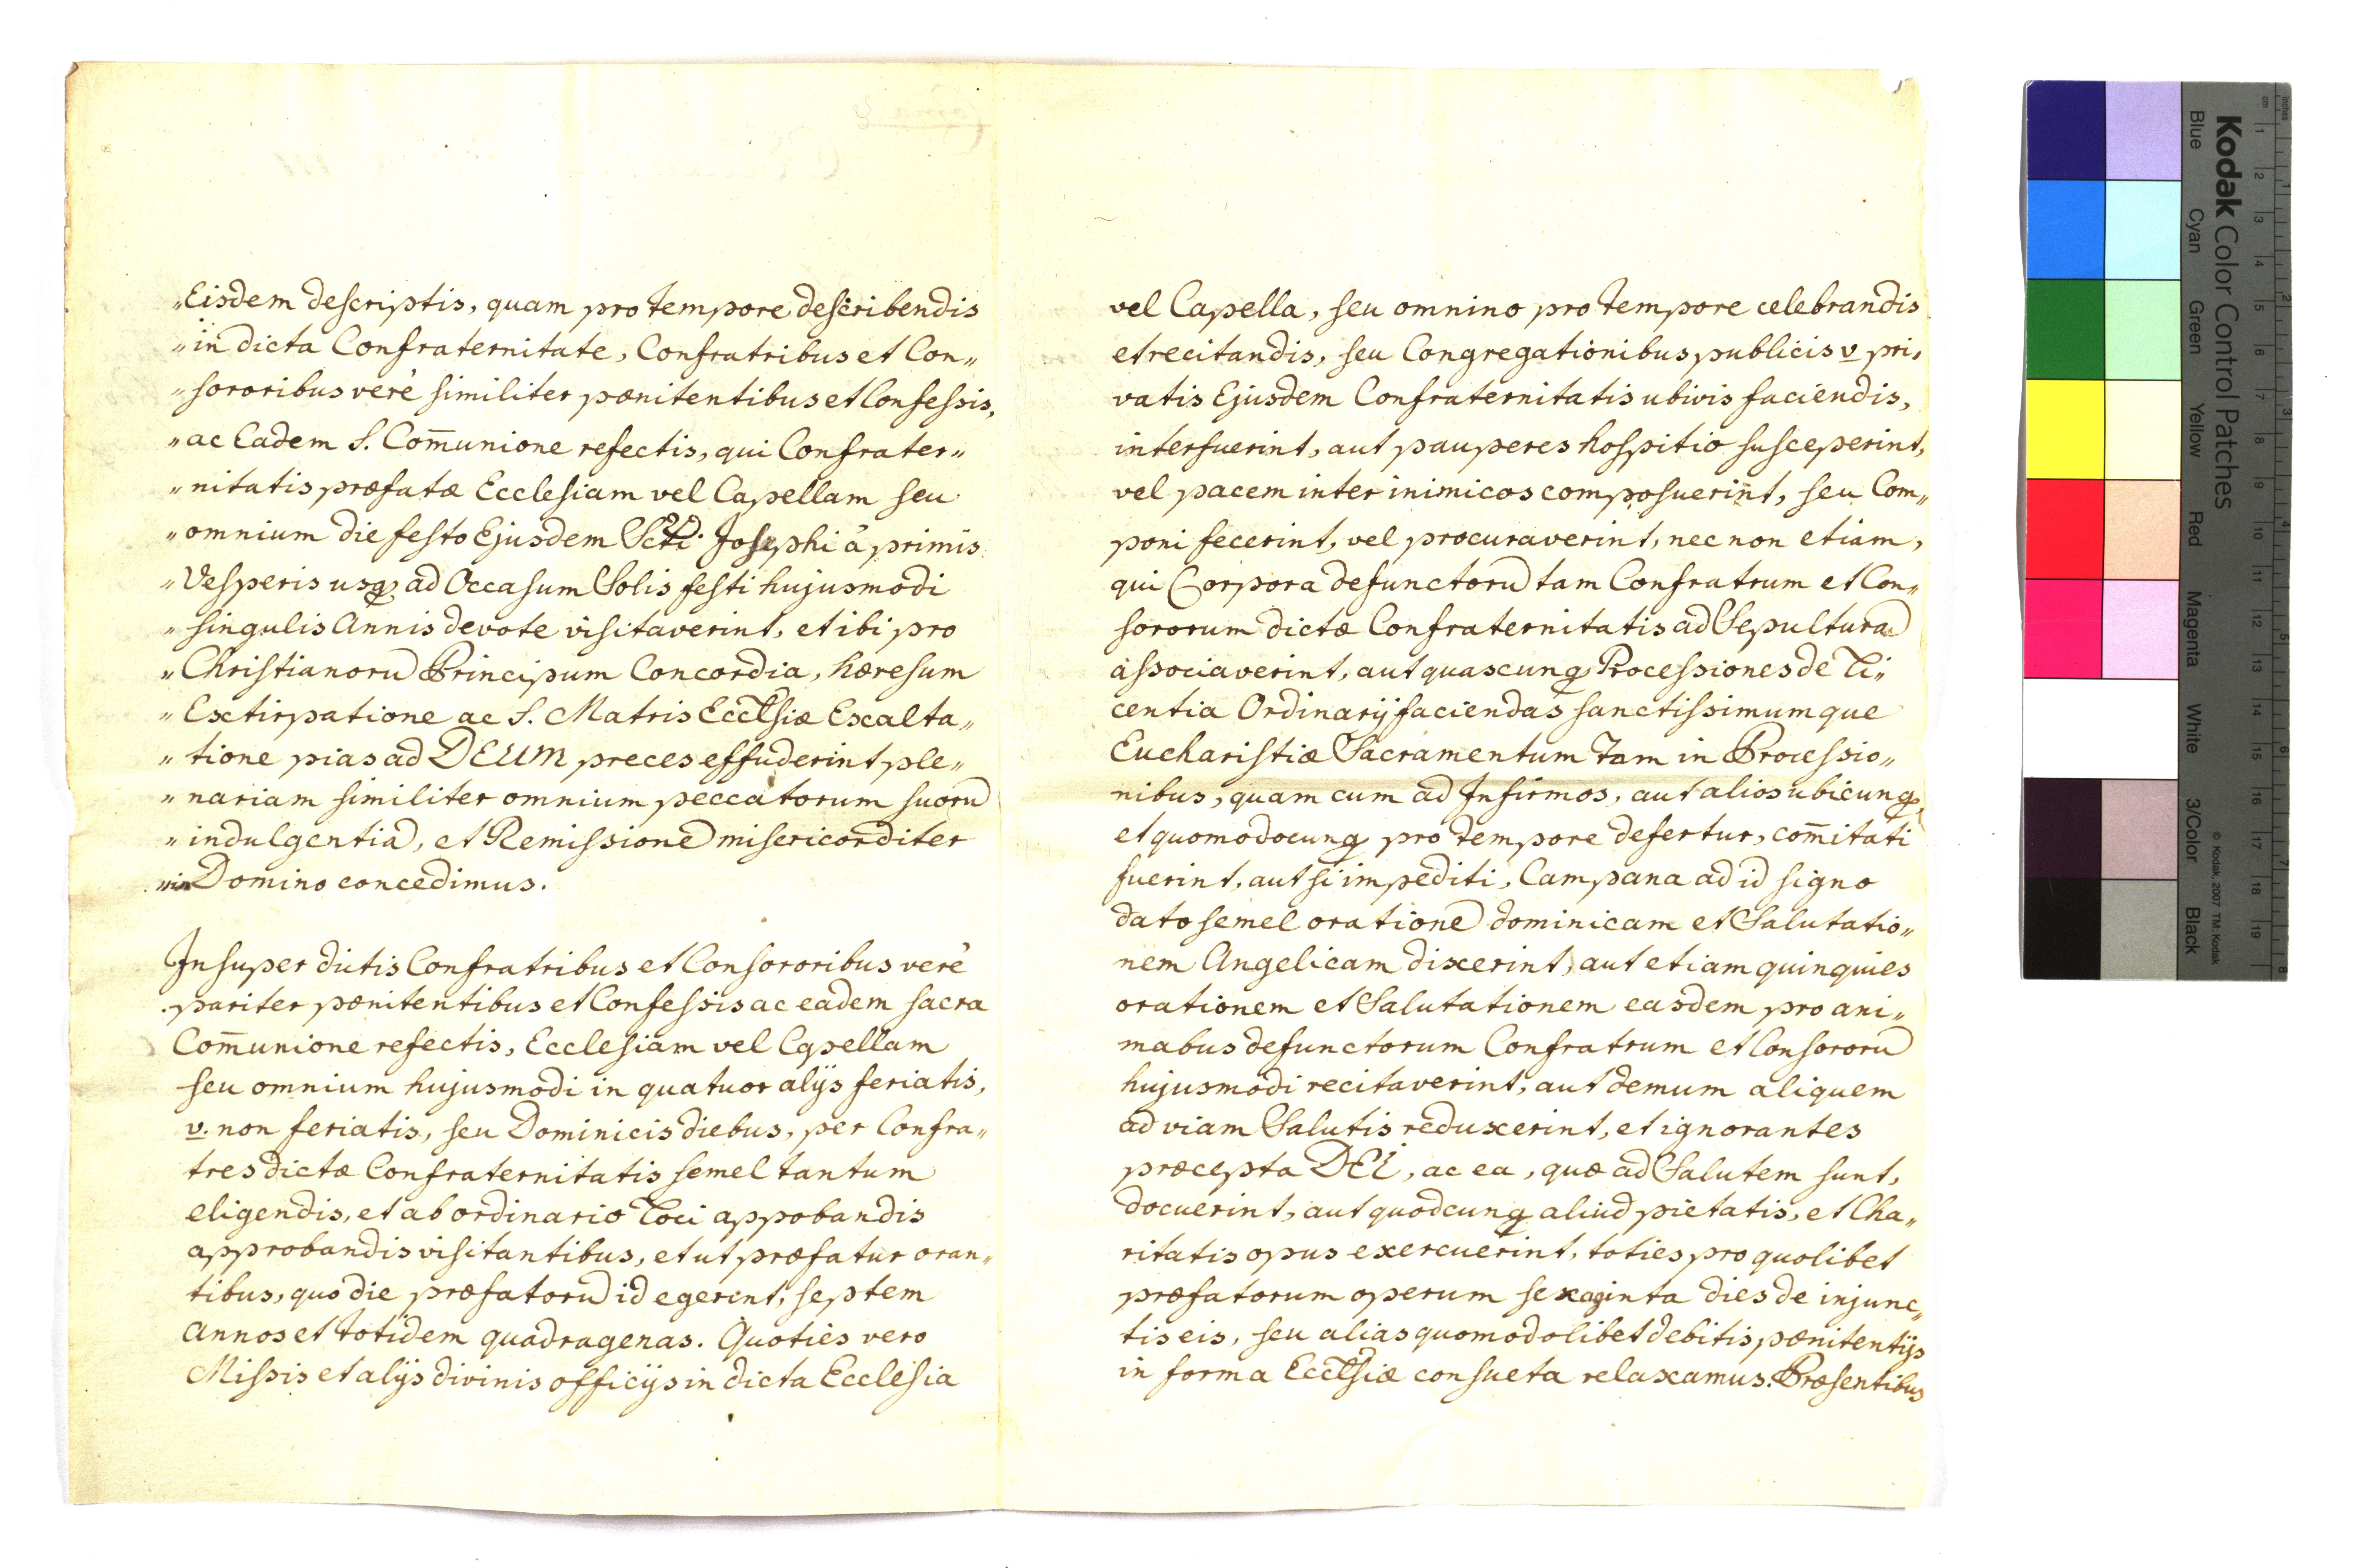 „Eisdem descriptis, quam pro tempore describendis
„in dicta Confraternitate, Confratribus et Con„
„sororibus verè similiter pœnitentibus et Confessis,
„ac Eadem S. Com̄unione refectis, qui Confrater„
„nitatis præfatæ Ecclesiam vel Capellam seu
„omnium die festo Ejusdem Scti Josephi à primis
„Vesperis usq̨ ad Occasum Solis festi hujusmodi
„singulis Annis devote visitaverint, et ibi pro
„Christianorū Principum Concordia, hæresum
„Extirpatione ac S. Matris Ecclsiæ Exalta„
„tione pias ad DEUM preces effuderint ple„
„nariam similiter omnium peccatorum suorū
„indulgentiā, et Remissionē misericorditer
„in Domino concedimus.
Insuper dictis Confratribus et Consororibus verè
pariter pœnitentibus et Confessis ac eadem sacra
Com̄unione refectis, Ecclesiam vel Capellam
seu omnium hujusmodi in quatuor alijs feriatis,
v. non feriatis, seu Dominicis diebus, per Confra„
tres dictæ Confraternitatis semel tantum
eligendis, et ab ordinario Loci appobandis
approbandis visitantibus, et ut præfatur oran„
tibus, quo die præfatorū id egerint, septem
annos et totidem quadragenas. Quoties vero
Missis et alijs divinis officijs in dicta Ecclesia
vel Capella, seu omnino pro tempore celebrandis
et recitandis, seu Congregationibus publicis v pri„
vatis Ejusdem Confraternitatis ubivis faciendis,
interfuerint, aut pauperes hospitio susceperint,
vel pacem inter inimicos composuerint, seu Com„
poni fecerint, vel procuraverint, nec non etiam,
qui Corpora defunctorū tam Confratrum et Con„
sororum dictæ Confraternitatis ad Sepulturā
associaverint, aut quascunq̨ Processiones de Li„
centia Ordinarij faciendas sanctissimumque
Eucharistiæ Sacramentum tam in Processio„
nibus, quam cum ad Infirmos, aut alios ubicunq̨,
et quomodocunq̨ pro tempore defertur, com̄itati
fuerint, aut si impediti, Campana ad id signo
dato semel orationē dominicam et Salutatio„
nem Angelicam dixerint, aut etiam quinquies
orationem et Salutationem easdem pro ani„
mabus defunctorum Confratrum et Consororū
hujusmodi recitaverint, aut demum aliquem
ad viam Salutis reduxerint, et ignorantes
præcepta DEI, ac ea, quæ ad Salutem sunt,
docuerint, aut quodcunq̨ aliud pietatis, et Cha„
ritatis opus exercuerint, toties pro quolibet
præfatorum operum sexaginta dies de injunc„
tis eis, seu alias quomodolibet debitis pœnitentijs
in forma Ecclsiæ consueta relaxamus. Præsentibus
inches
cm
1 2 3 4 5 6 7 8 9 10 11 12 13 14 15 16 17 18 19
1 2 3 4 5 6 7 8
Kodak Color Control Patches
© Kodak, 2007 TM: Kodak
Blue Cyan Green Yellow Red Magenta White 3/Color Black